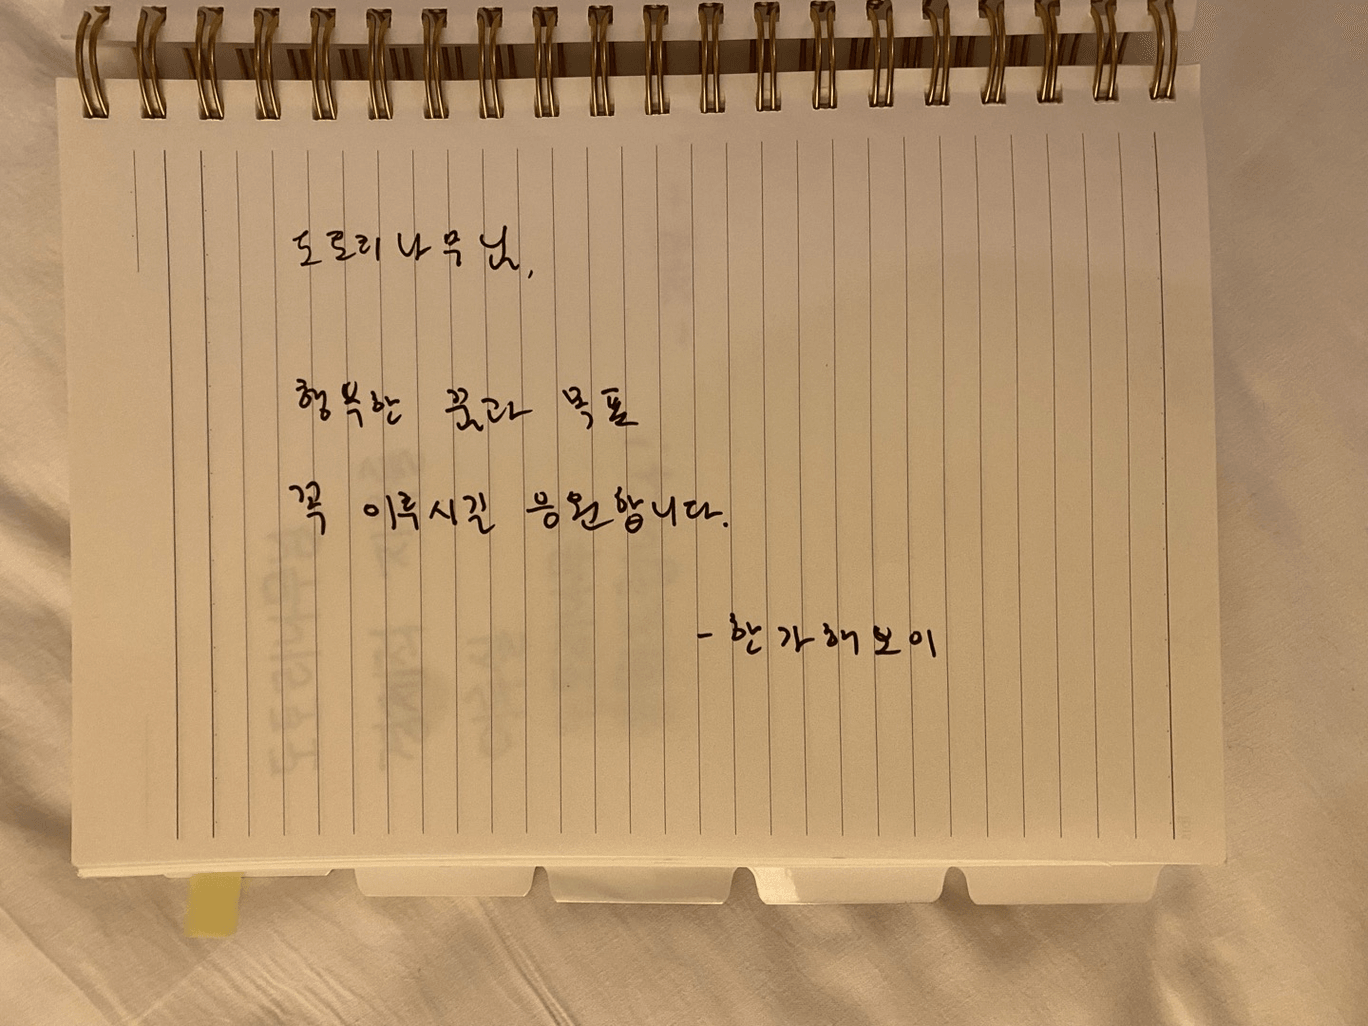 도로리나무님,
행복한 꿈과 목표
꼭 이루시길 응원합니다.
- 한가해보이